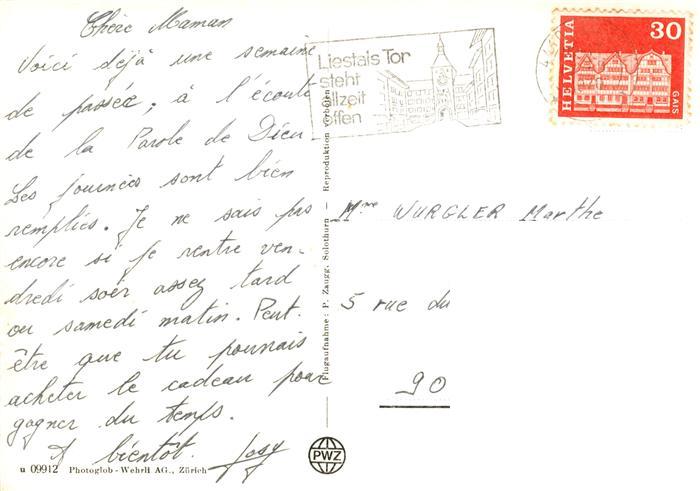 Chère Maman
Voici déjà une semaine
de passée, à l'écoute
de la Parole de Dieu
Les journées sont bien
remplies. Je ne sais pas
encore si je rentre ven-
dredi soir assez tard
ou samedi matin. Peut.
être que tu pourrais
acheter le cadeau pour
gagner du temps.
A bientôt. Josy
u 09912 Photoglob-Wehrli AG., Zürich
Flugaufnahme: P. Zaugg, Solothurn – Reproduktion verboten
PWZ
Liestals Tor
steht
allzeit
offen
HELVETIA
30
GAIS
Mme WURGLER Marthe
5 rue du
90